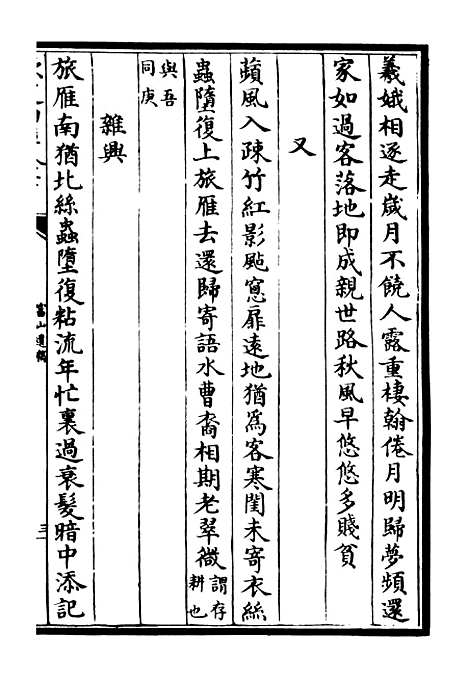 羲娥相逐走歲月不饒人露重棲翰倦月明歸夢頻還
家如過客落地即成親世路秋風早悠悠多賤貧
又
蘋風入疎竹紅影颭窓扉遠地猶為客寒閨未寄衣絲
蟲墮復上旅雁去還歸寄語水曹裔相期老翠微謂存耕也
與吾同庚
雜興
旅雁南猶北絲蟲墮復粘流年忙裏過衰髮暗中添記
富山遺稿